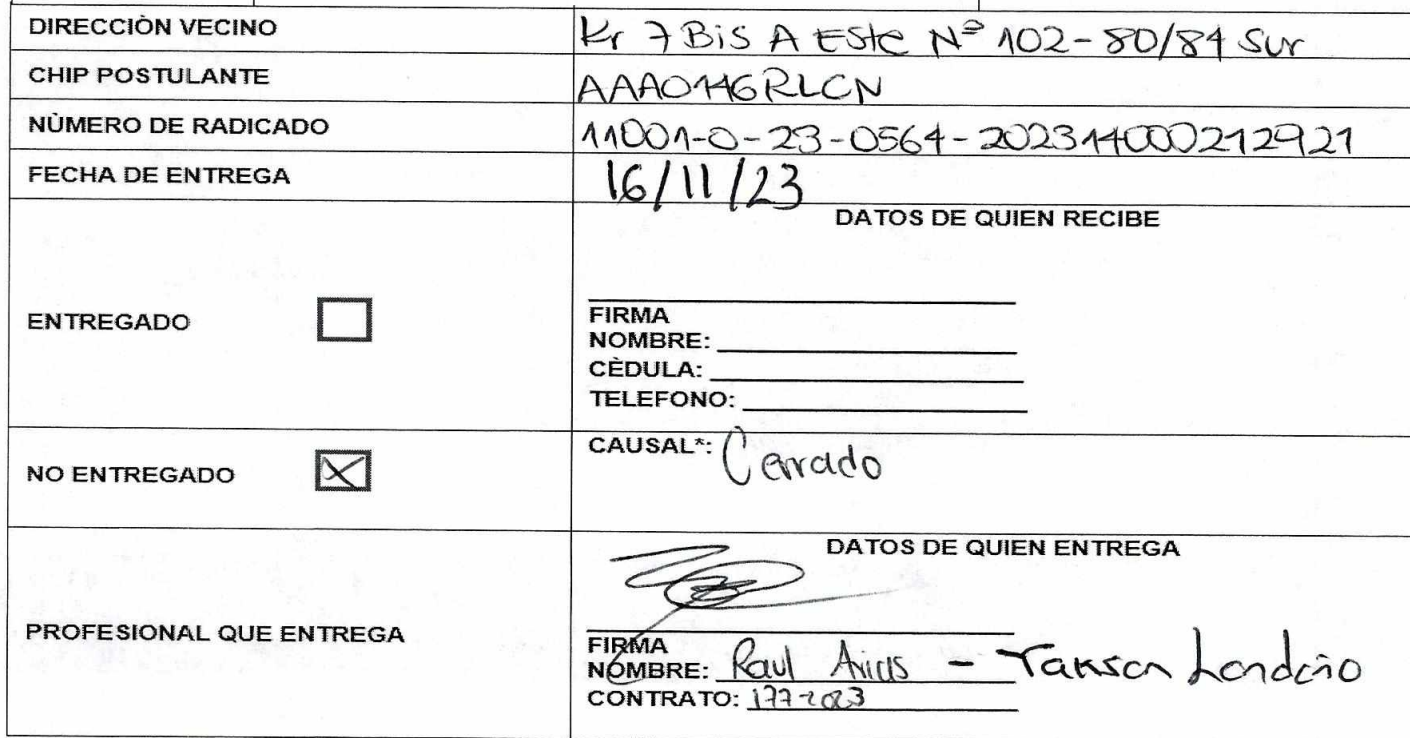 DIRECCIÒN VECINO Kr 7 Bis A Este Nº 102-80/84 Sur
CHIP POSTULANTE AAA0146RLCN
NÙMERO DE RADICADO 11001-0-23-0564-202314000212921
FECHA DE ENTREGA 16/11/23
DATOS DE QUIEN RECIBE
ENTREGADO
FIRMA
NOMBRE:
CÈDULA:
TELEFONO:
NO ENTREGADO X CAUSAL*: Cerrado
DATOS DE QUIEN ENTREGA
PROFESIONAL QUE ENTREGA
FIRMA
NOMBRE: Raul Arias - Londoño
CONTRATO: 177-2023